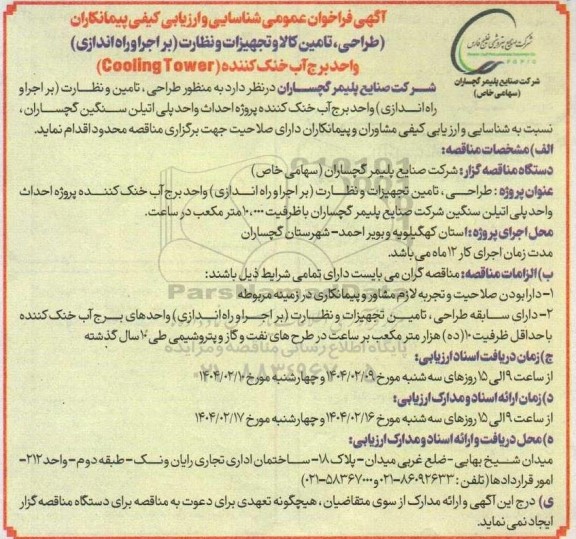 آگهی فراخوان عمومی شناسایی و ارزیابی کیفی پیمانکاران
(طراحی، تامین کالا و تجهیزات و نظارت (بر اجرا و راه اندازی)
واحد برج آب خنک کننده (Cooling Tower)
PGPIC
شرکت صنایع پلیمر گچساران
(سهامی خاص)
شرکت صنایع پلیمر گچساران در نظر دارد به منظور طراحی، تامین و نظارت (بر اجرا و
راه اندازی) واحد برج آب خنک کننده پروژه احداث واحد پلی اتیلن سنگین گچساران،
نسبت به شناسایی و ارزیابی کیفی مشاوران و پیمانکاران دارای صلاحیت جهت برگزاری مناقصه محدود اقدام نماید.
الف) مشخصات مناقصه:
دستگاه مناقصه گزار: شرکت صنایع پلیمر گچساران (سهامی خاص)
عنوان پروژه: طراحی، تامین تجهیزات و نظارت (بر اجرا و راه اندازی) واحد برج آب خنک کننده پروژه احداث
واحد پلی اتیلن سنگین شرکت صنایع پلیمر گچساران با ظرفیت ۱۰،۰۰۰ متر مکعب در ساعت.
محل اجرای پروژه: استان کهگیلویه و بویر احمد- شهرستان گچساران
مدت زمان اجرای کار ۱۲ ماه می باشد.
ب) الزامات مناقصه: مناقصه گران می بایست دارای تمامی شرایط ذیل باشند:
۱- دارا بودن صلاحیت و تجربه لازم مشاور و پیمانکاری در زمینه مربوطه
۲- دارای سابقه طراحی، تامین تجهیزات و نظارت (بر اجرا و راه اندازی) واحدهای برج آب خنک کننده
با حداقل ظرفیت ۱۰ (ده) هزار متر مکعب بر ساعت در طرح های نفت و گاز و پتروشیمی طی ۱۰ سال گذشته
ج) زمان دریافت اسناد ارزیابی:
از ساعت ۹ الی ۱۵ روزهای سه شنبه مورخ ۱۴۰۴/۰۲/۰۹ و چهارشنبه مورخ ۱۴۰۴/۰۲/۱۰
د) زمان ارائه اسناد و مدارک ارزیابی:
از ساعت ۹ الی ۱۵ روزهای سه شنبه مورخ ۱۴۰۴/۰۲/۱۶ و چهارشنبه مورخ ۱۴۰۴/۰۲/۱۷
ه) محل دریافت و ارائه اسناد و مدارک ارزیابی:
میدان شیخ بهایی- ضلع غربی میدان- پلاک ۱۸- ساختمان اداری تجاری رایان ونک- طبقه دوم- واحد ۲۱۲-
امور قراردادها (تلفن: ۸۶۰۹۲۶۳۳-۰۲۱ و ۵۸۳۶۷۰۰۰-۰۲۱)
ی) درج این آگهی و ارائه مدارک از سوی متقاضیان، هیچگونه تعهدی برای دعوت به مناقصه برای دستگاه مناقصه گزار
ایجاد نمی نماید.